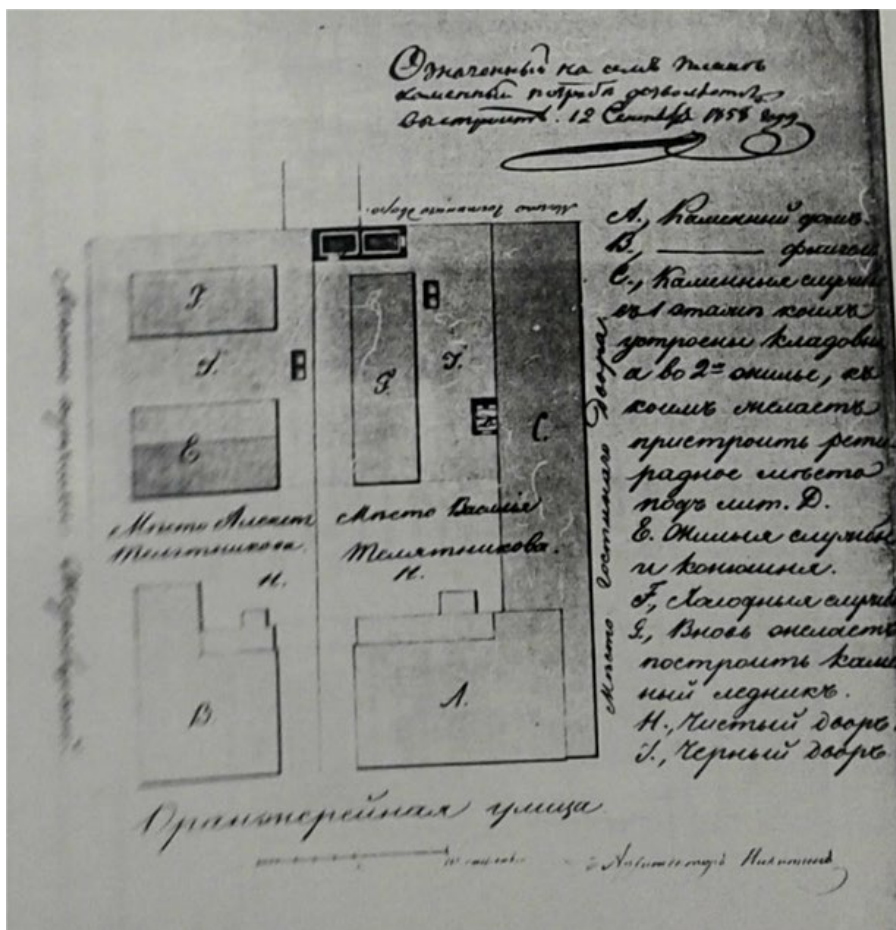 Означенный на семъ планѣ
каменный погребъ дозволяется
выстроить. 12 Сентября 1858 года
Мѣсто Гостиннаго двора.
А., Каменный домъ.
В., ——— флигель
С., Каменныя службы
въ 1 этажѣ коихъ
устроены кладовыя
а во 2мъ жилье, къ
коимъ желаетъ
пристроить рети-
радное мѣсто
подъ лит. D.
Е. Жилыя службы
и конюшня.
F., Холодныя службы
G., Вновь желаетъ
построить камен-
ный ледникъ.
H., Чистый дворъ.
I., Черный дворъ.
Мѣсто гостиннаго Двора.
F
I.
E
F.
I.
C.
Мѣсто Алексѣя
Телятникова.
H.
Мѣсто Василія
Телятникова.
H.
B
A.
Оранжерейная улица
Архитекторъ Никитинъ